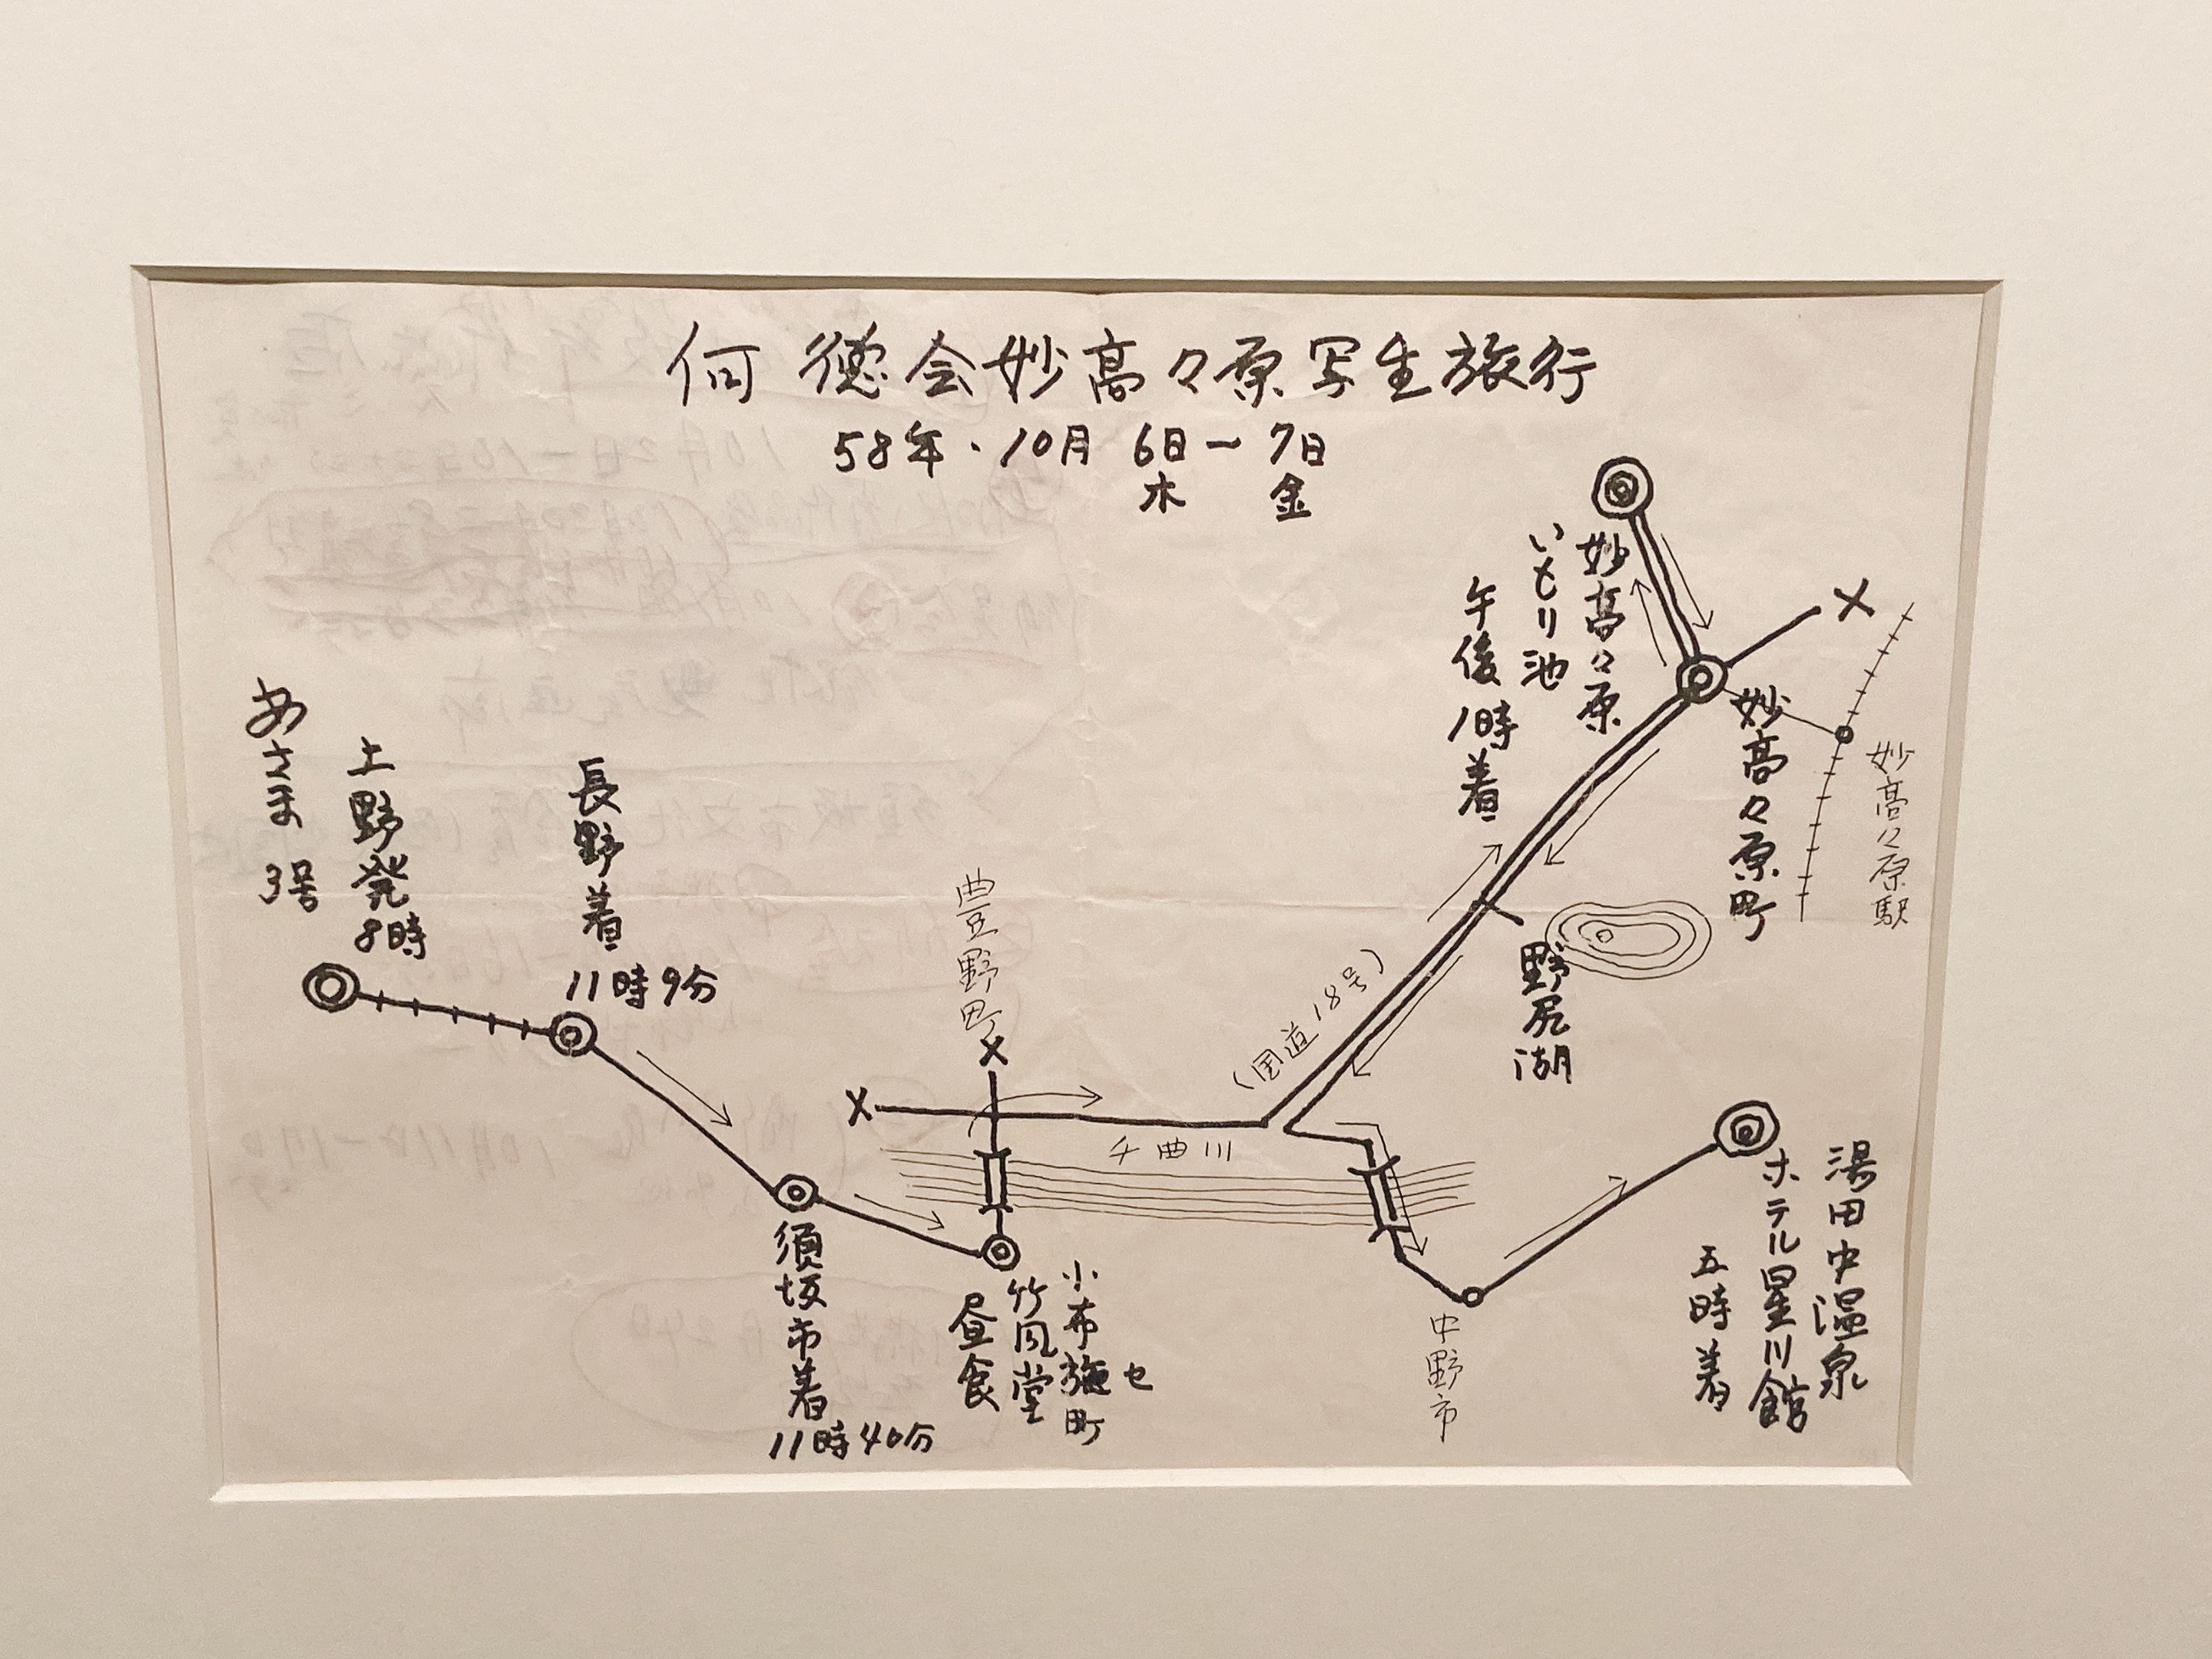 何徳会妙高々原写生旅行
58年・10月6日〜7日
木 金
あさま3号
上野発8時
長野着
11時9分
須坂市着
11時40分
豊野町
X
X
千曲川
小布施町
竹風堂
昼食
セ
(国道18号)
野尻湖
妙高々原
いもり池
午後1時着
X
妙高々原町
妙高々原駅
中野市
湯田中温泉
ホテル星川館
五時着